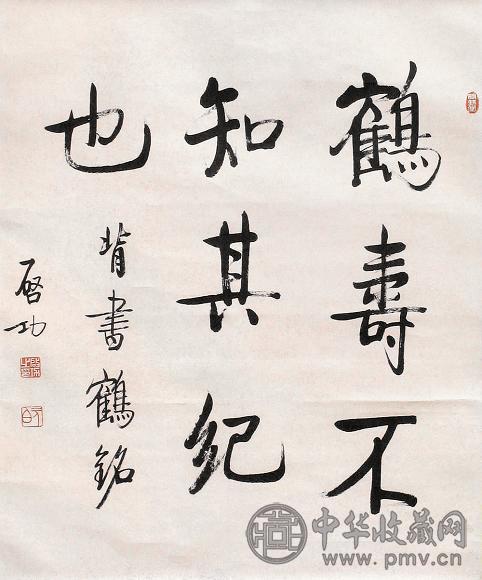 鶴壽不
知其紀
也
背書鶴銘
啓功
中华收藏网
www.pmv.cn